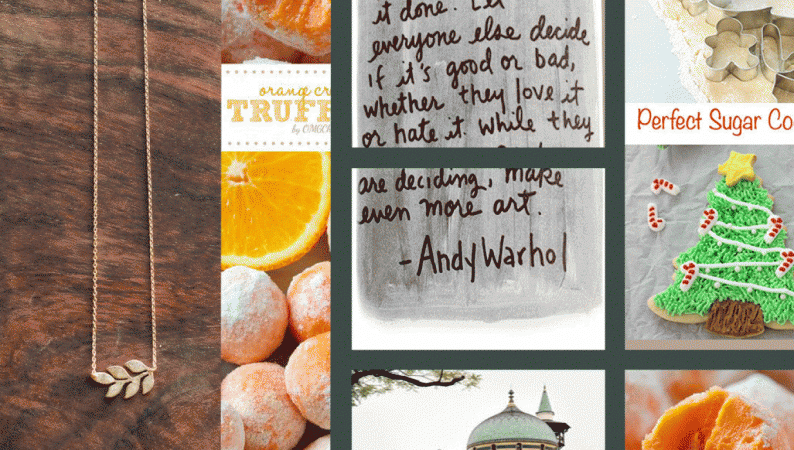 orange cr
TRUFF
by OMGCH
it done. Let
everyone else decide
if it's good or bad,
whether they love it
or hate it. While they
are deciding, make
even more art.
-Andy Warhol
Perfect Sugar Co